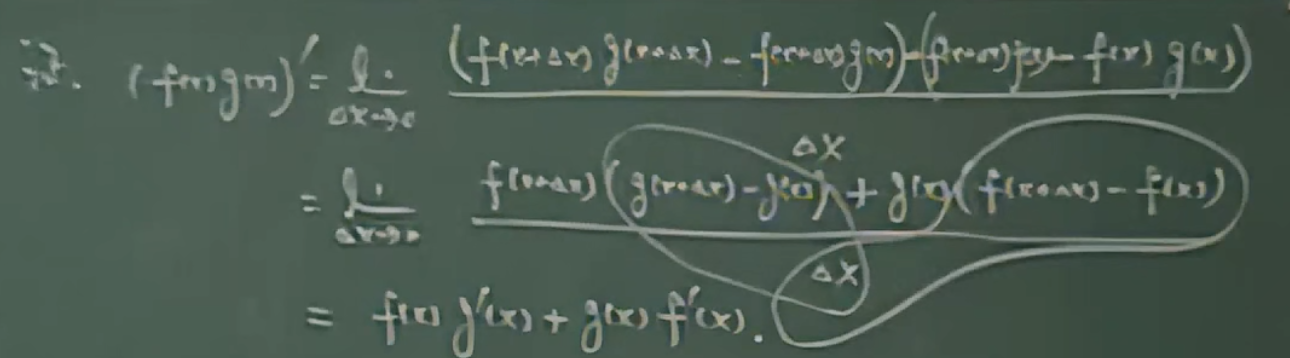 証. (f(x)g(x))' = lim Δx→0 (f(x+Δx) g(x+Δx) - f(x+Δx)g(x))-(f(x+Δx)g(x) - f(x) g(x)) / Δx
= lim Δx→0 f(x+Δx)(g(x+Δx)-g(x)) + g(x)(f(x+Δx) - f(x)) / Δx
= f(x) g'(x) + g(x) f'(x).